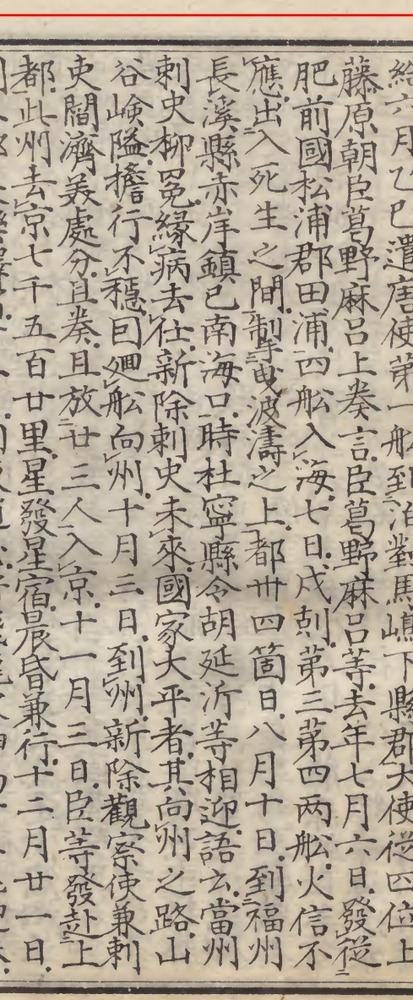 六月乙巳遣唐使第一舩到泊對馬嶋下縣郡大使從四位上
藤原朝臣葛野麻呂上奏言臣葛野麻呂等去年七月六日發從
肥前國松浦郡田浦四舩入海七日戌剋第三第四两舩火信不
應出入死生之間掣曳波濤之上都卅四箇日八月十日到福州
長溪縣赤岸鎮已南海口時杜寧縣令胡延沂等相迎語云當州
刺史柳冕緣病去仕新除刺史未來國家大平者其向州之路山
谷嶮隘擔行不穩囙廻舩向州十月三日到州新除觀察使兼刺
史閻濟美處分且奏且放廿三人入京十一月三日臣等發赴上
都此州去京七千五百廿里星發星宿晨昏兼行十二月廿一日